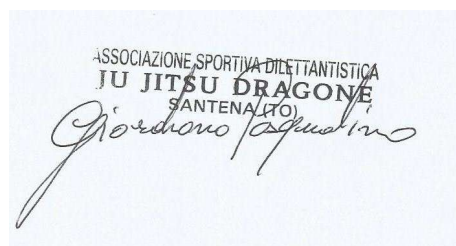 ASSOCIAZIONE SPORTIVA DILETTANTISTICA
JU JITSU DRAGONE
SANTENA (TO)
Giordano Pasqualino